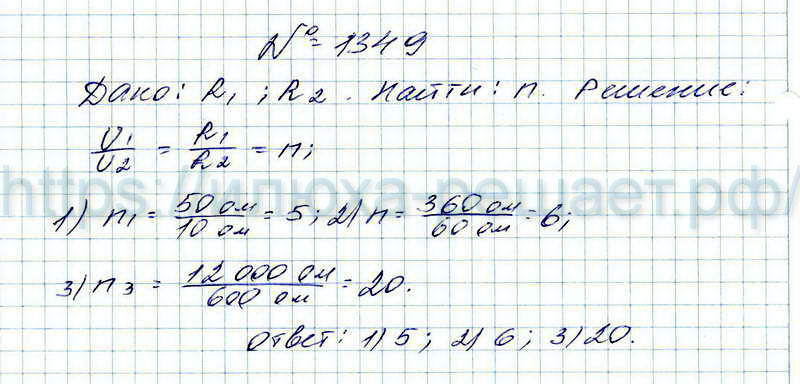 № = 1349
Дано: R1; R2. Найти: n. Решение:
U1/U2 = R1/R2 = n;
https://илюха-решает.рф/
1) n1 = 50 ом/10 ом = 5; 2) n = 360 ом/60 ом = 6;
3) n3 = 12 000 ом/600 ом = 20.
Ответ: 1) 5; 2) 6; 3) 20.